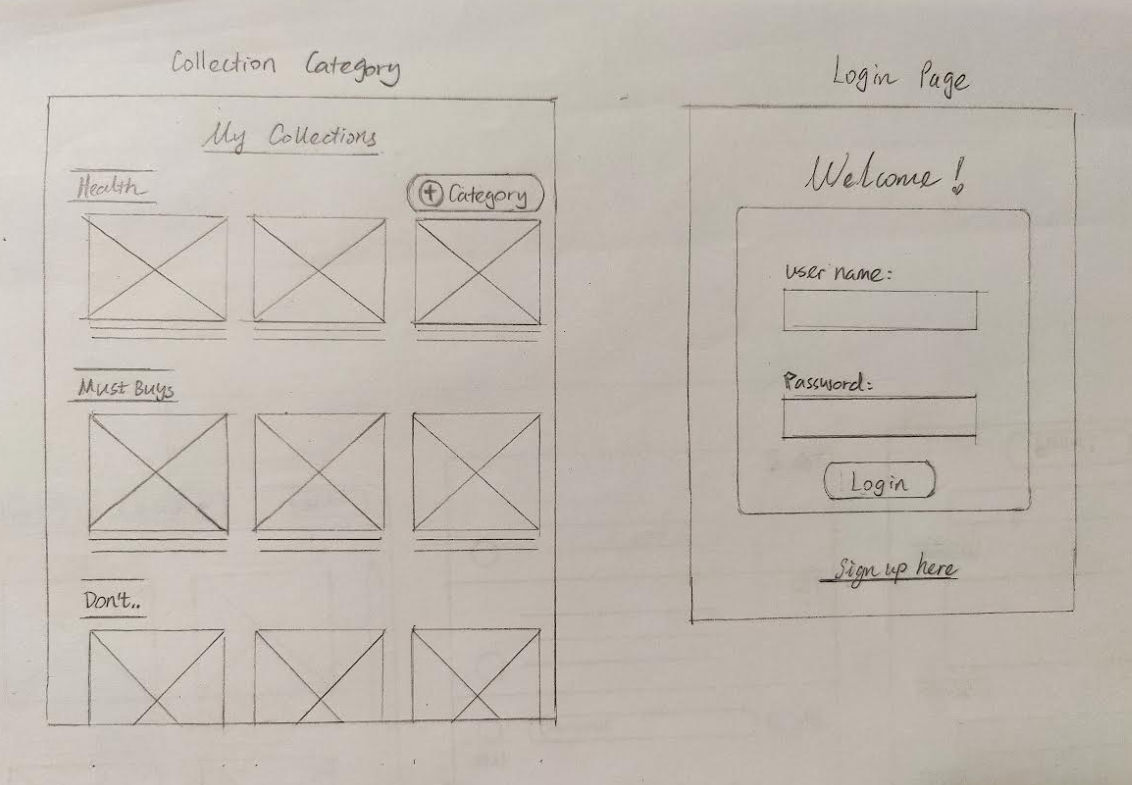 Collection Category
My Collections
Health
+ Category
Must Buys
Don't..
Login Page
Welcome!
user name:
Password:
Login
Sign up here